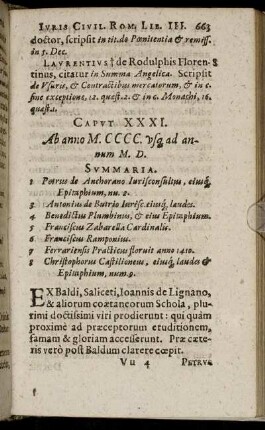 IVRIS CIVIL. ROM. LIB. III. 663
doctor, scripsit in tit. de Pœnitentia & remiss.
in 5. Dec.
LAVRENTIVS de Rodulphis Floren-
tinus, citatur in Summa Angelica. Scripsit
de Vsuris, & Contractibus mercatorum, & in c.
sine exceptione, 12. quæst. 2. & in c. Monachi, 16.
quæst. 1.
CAPVT XXXI.
Ab anno M. CCCC. vsq; ad an-
num M. D.
SVMMARIA.
1 Petrus de Ancharano Iurisconsultus, eiusq;
Epitaphium, nu. 2.
3 Antonius de Butrio Iurisc. eiusq; laudes.
4 Benedictus Plumbinus, & eius Epitaphium.
5 Franciscus Zabarella Cardinalis.
6 Franciscus Ramponius.
7 Ferrariensis Practicus floruit anno 1410.
8 Christophorus Castilioneus, eiusq; laudes &
Epitaphium, num. 9.
EX Baldi, Saliceti, Ioannis de Lignano,
& aliorum coætaneorum Schola, plu-
rimi doctissimi viri prodierunt: qui quàm
proximè ad præceptorum eruditionem,
famam & gloriam accesserunt. Præ cæte-
ris verò post Baldum clarere cœpit.
Vu 4 PETRVS